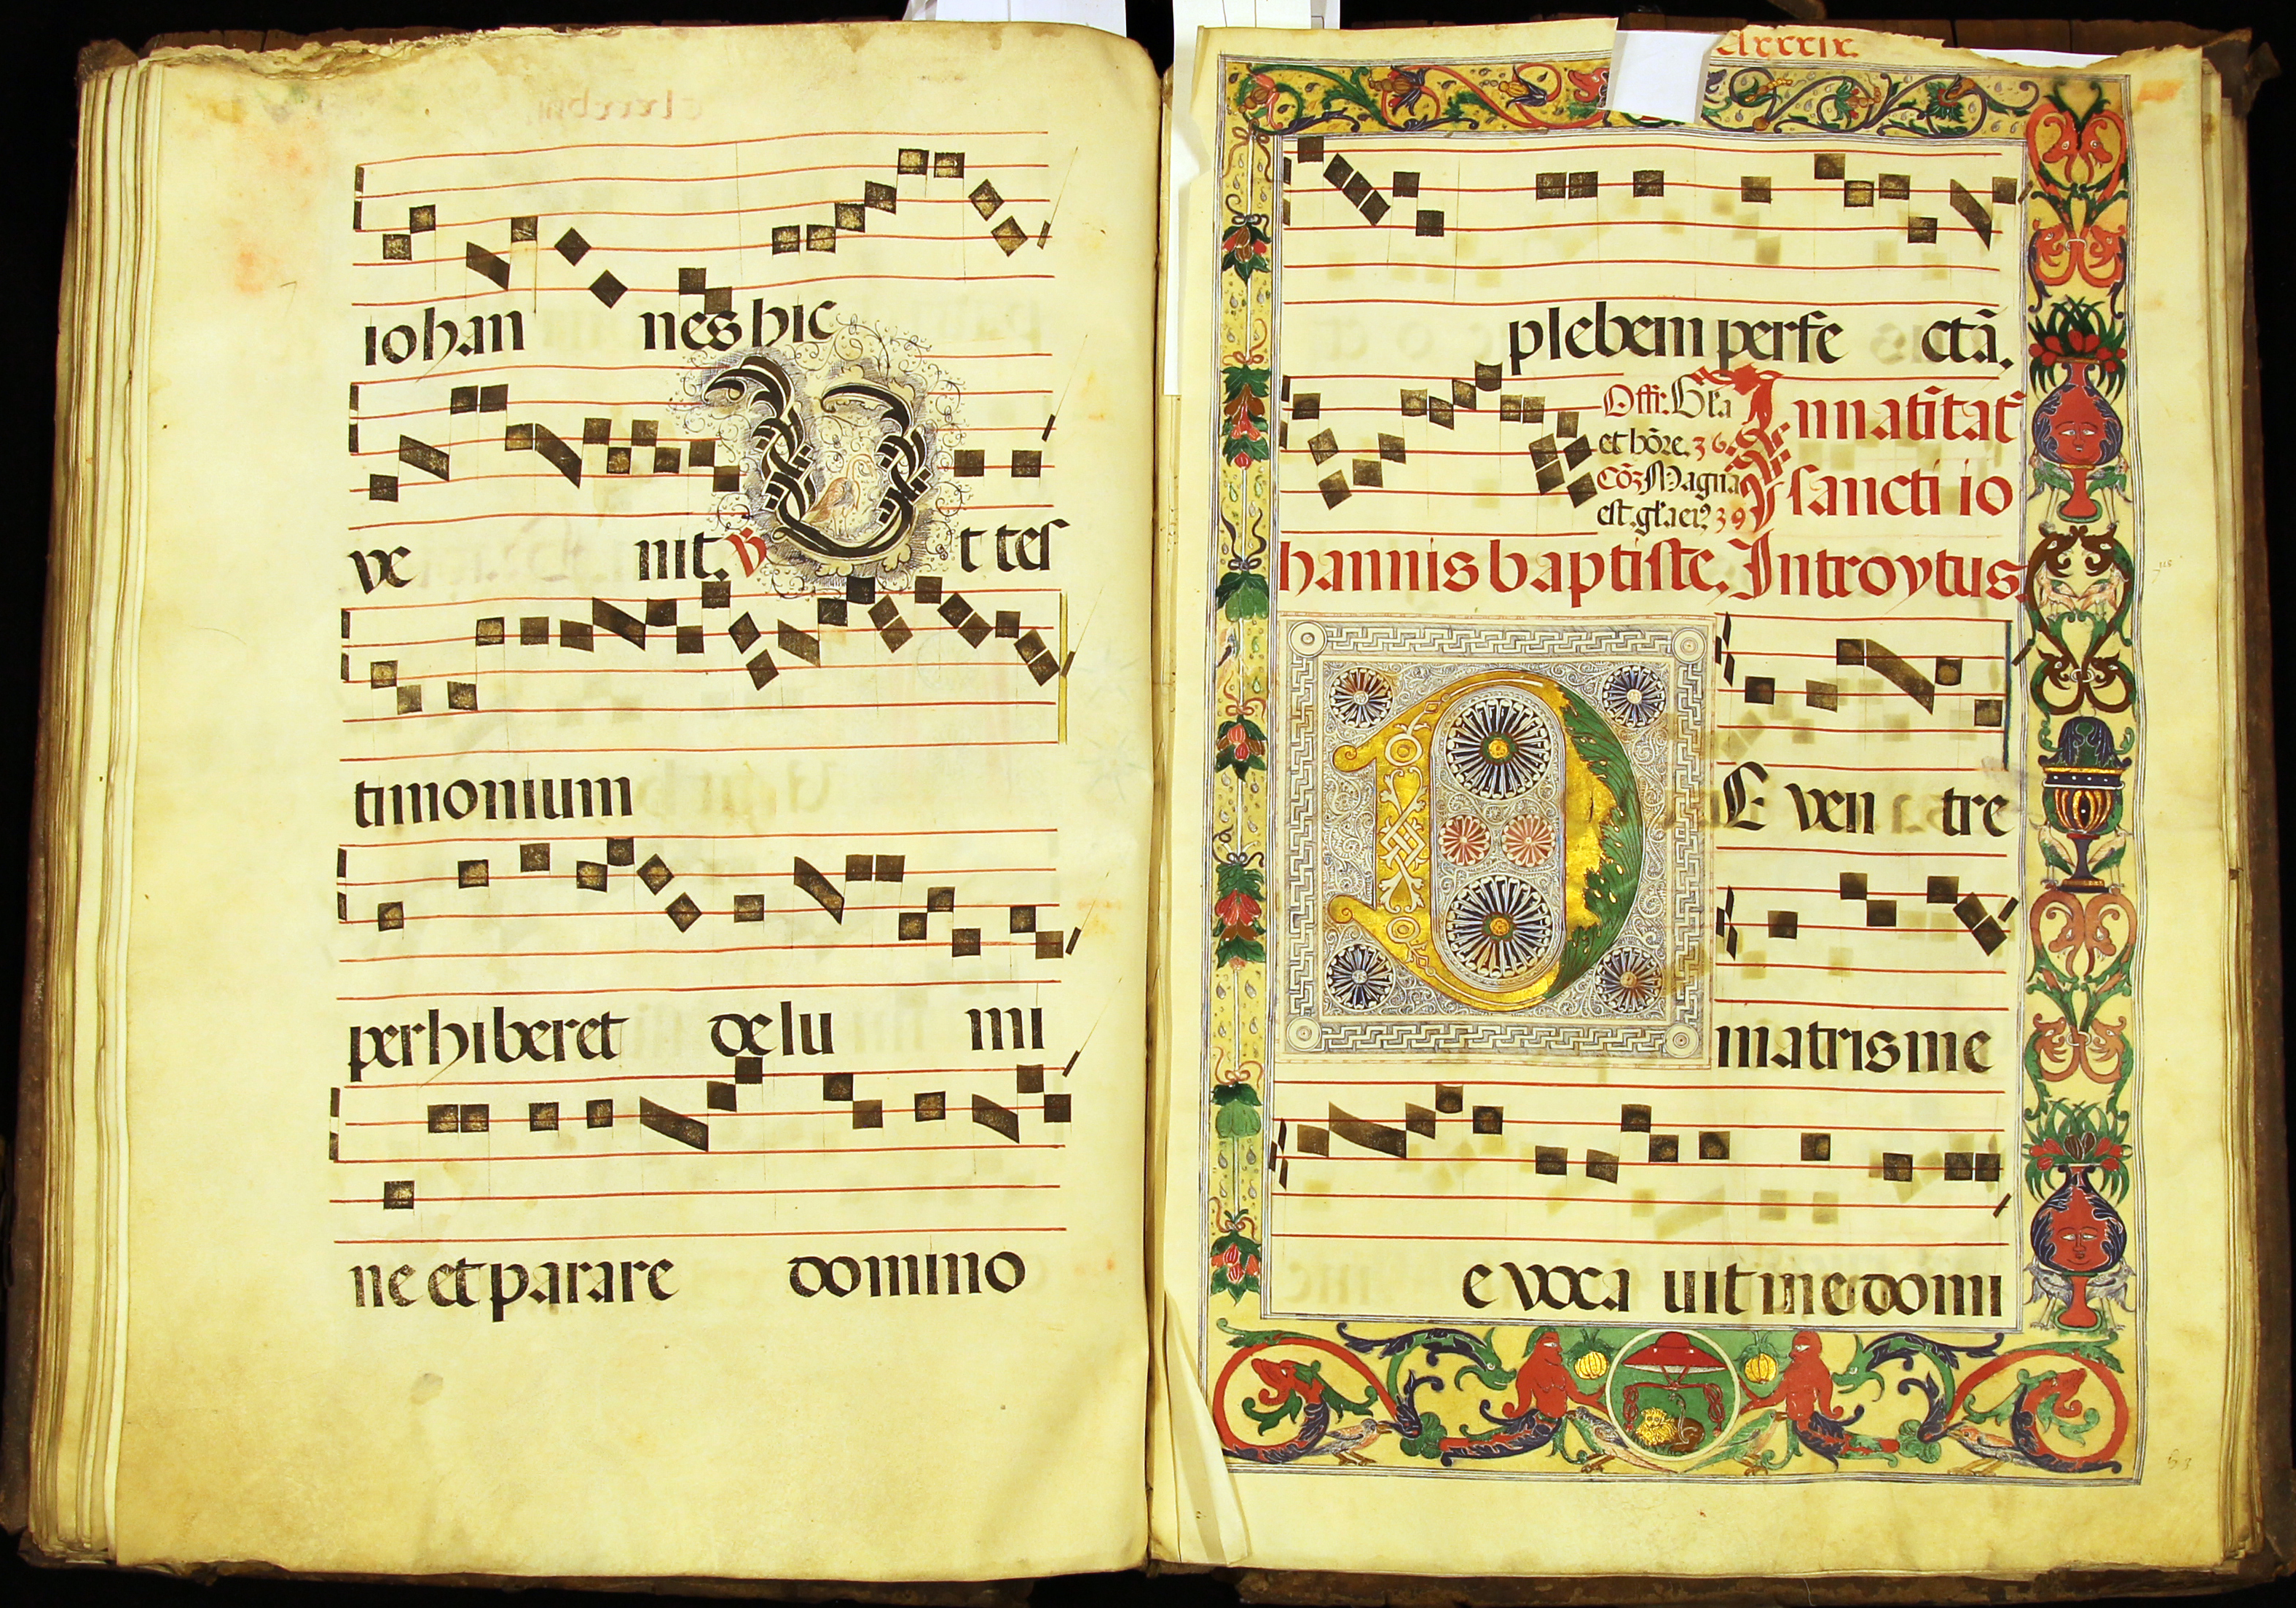 iohan nes hic
ve nit. ℣ Ut tes
timonium
perhiberet de lu mi
ne et parare domino
clxxxix.
plebem perfe ctā.
Offr. Gl̄a
et hōre. 36.
Cōz Magna
est. gl̄a ei9 39
In natītat̄
sancti io
hannis baptiste. Introytus.
DE ven tre
matris me
e voca uit me domi